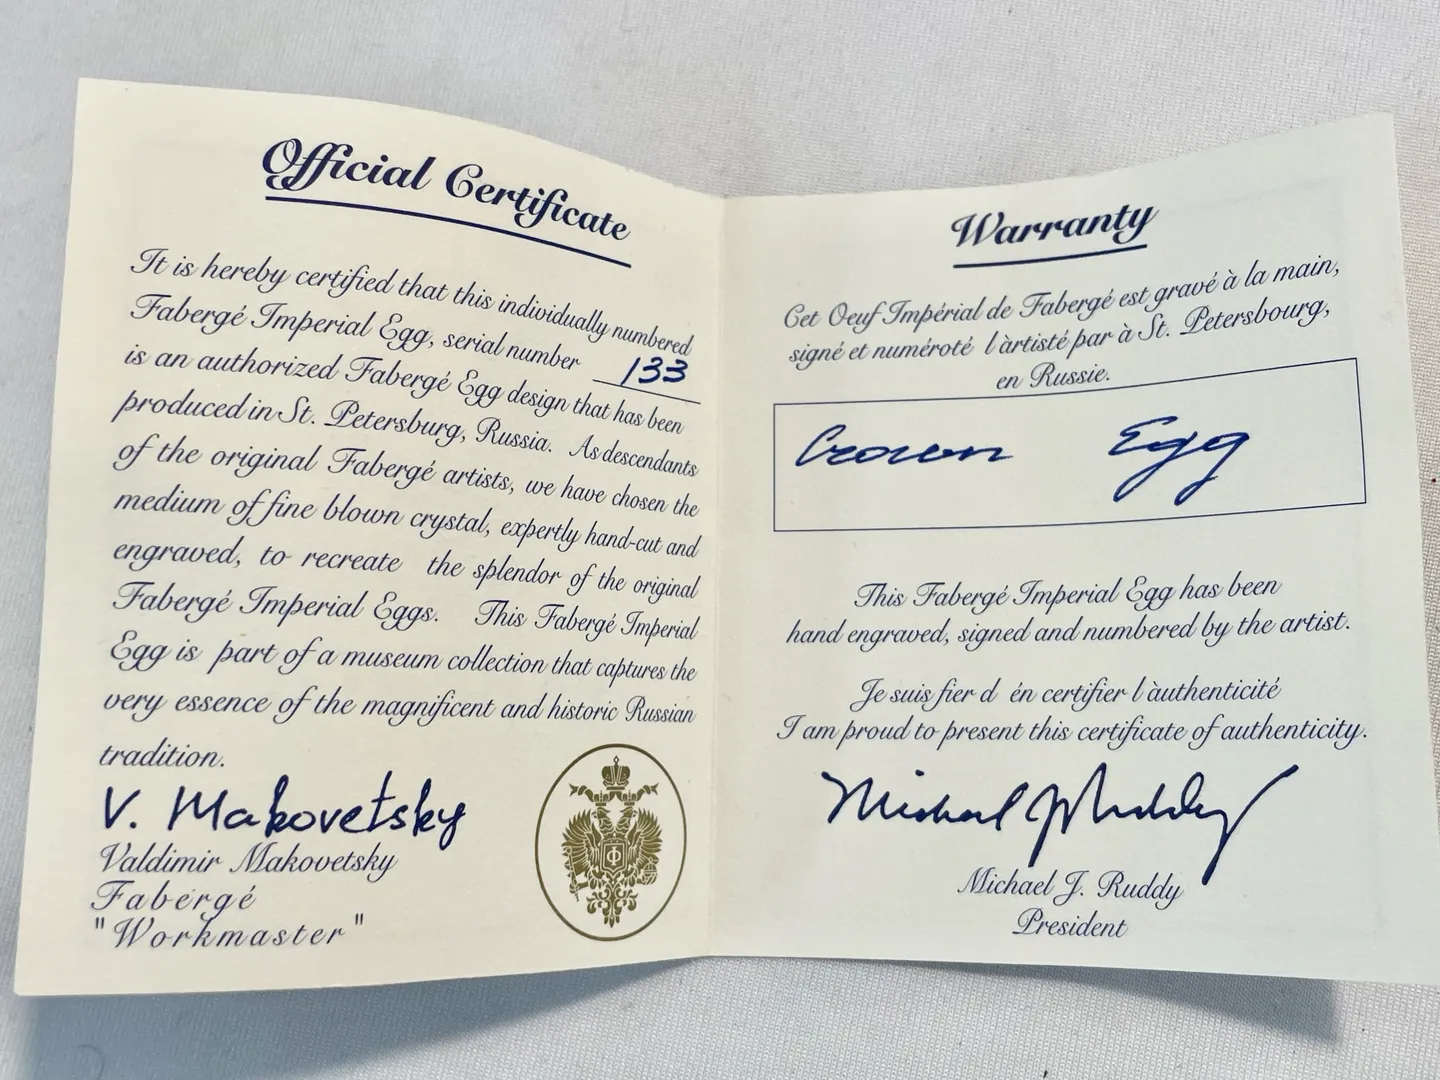 Official Certificate
It is hereby certified that this individually numbered
Fabergé Imperial Egg, serial number 133
is an authorized Fabergé Egg design that has been
produced in St. Petersburg, Russia. As descendants
of the original Fabergé artists, we have chosen the
medium of fine blown crystal, expertly hand-cut and
engraved, to recreate the splendor of the original
Fabergé Imperial Eggs. This Fabergé Imperial
Egg is part of a museum collection that captures the
very essence of the magnificent and historic Russian
tradition.
V. Makovetsky
Valdimir Makovetsky
Fabergé
"Workmaster"
Ф
Warranty
Cet Oeuf Impérial de Fabergé est gravé à la main,
signé et numéroté l àrtisté par à St. Petersbourg,
en Russie.
Crown Egg
This Fabergé Imperial Egg has been
hand engraved, signed and numbered by the artist.
Je suis fier d én certifier l àuthenticité
I am proud to present this certificate of authenticity.
Michael J Ruddy
Michael J. Ruddy
President